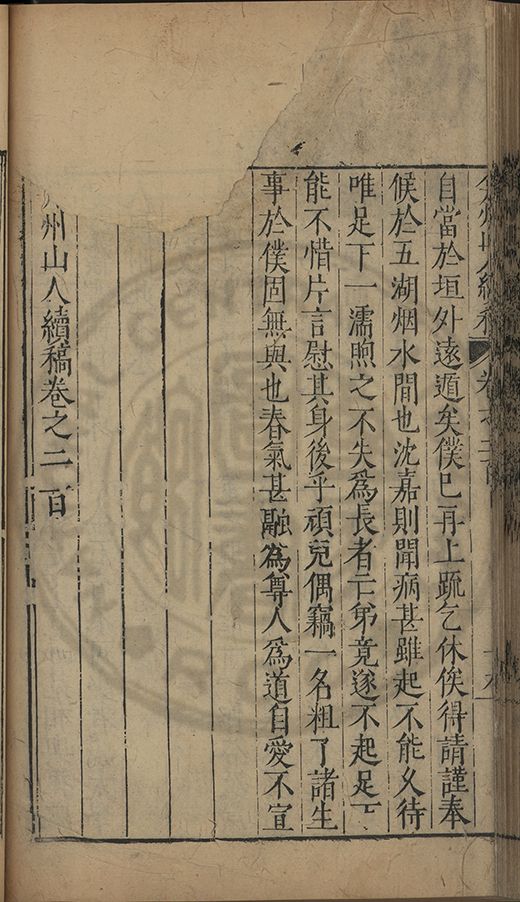 弇州山人續稿 卷之二百 十八
自當於垣外遠遁矣僕已再上疏乞休俟得請謹奉
候於五湖烟水間也沈嘉則聞病甚雖起不能久待
唯足下一濡喣之不失爲長者亡弟竟遂不起足下
能不惜片言慰其身後乎頑兒偶竊一名粗了諸生
事於僕固無與也春氣甚融為尊人爲道自愛不宣
州山人續稿卷之二百